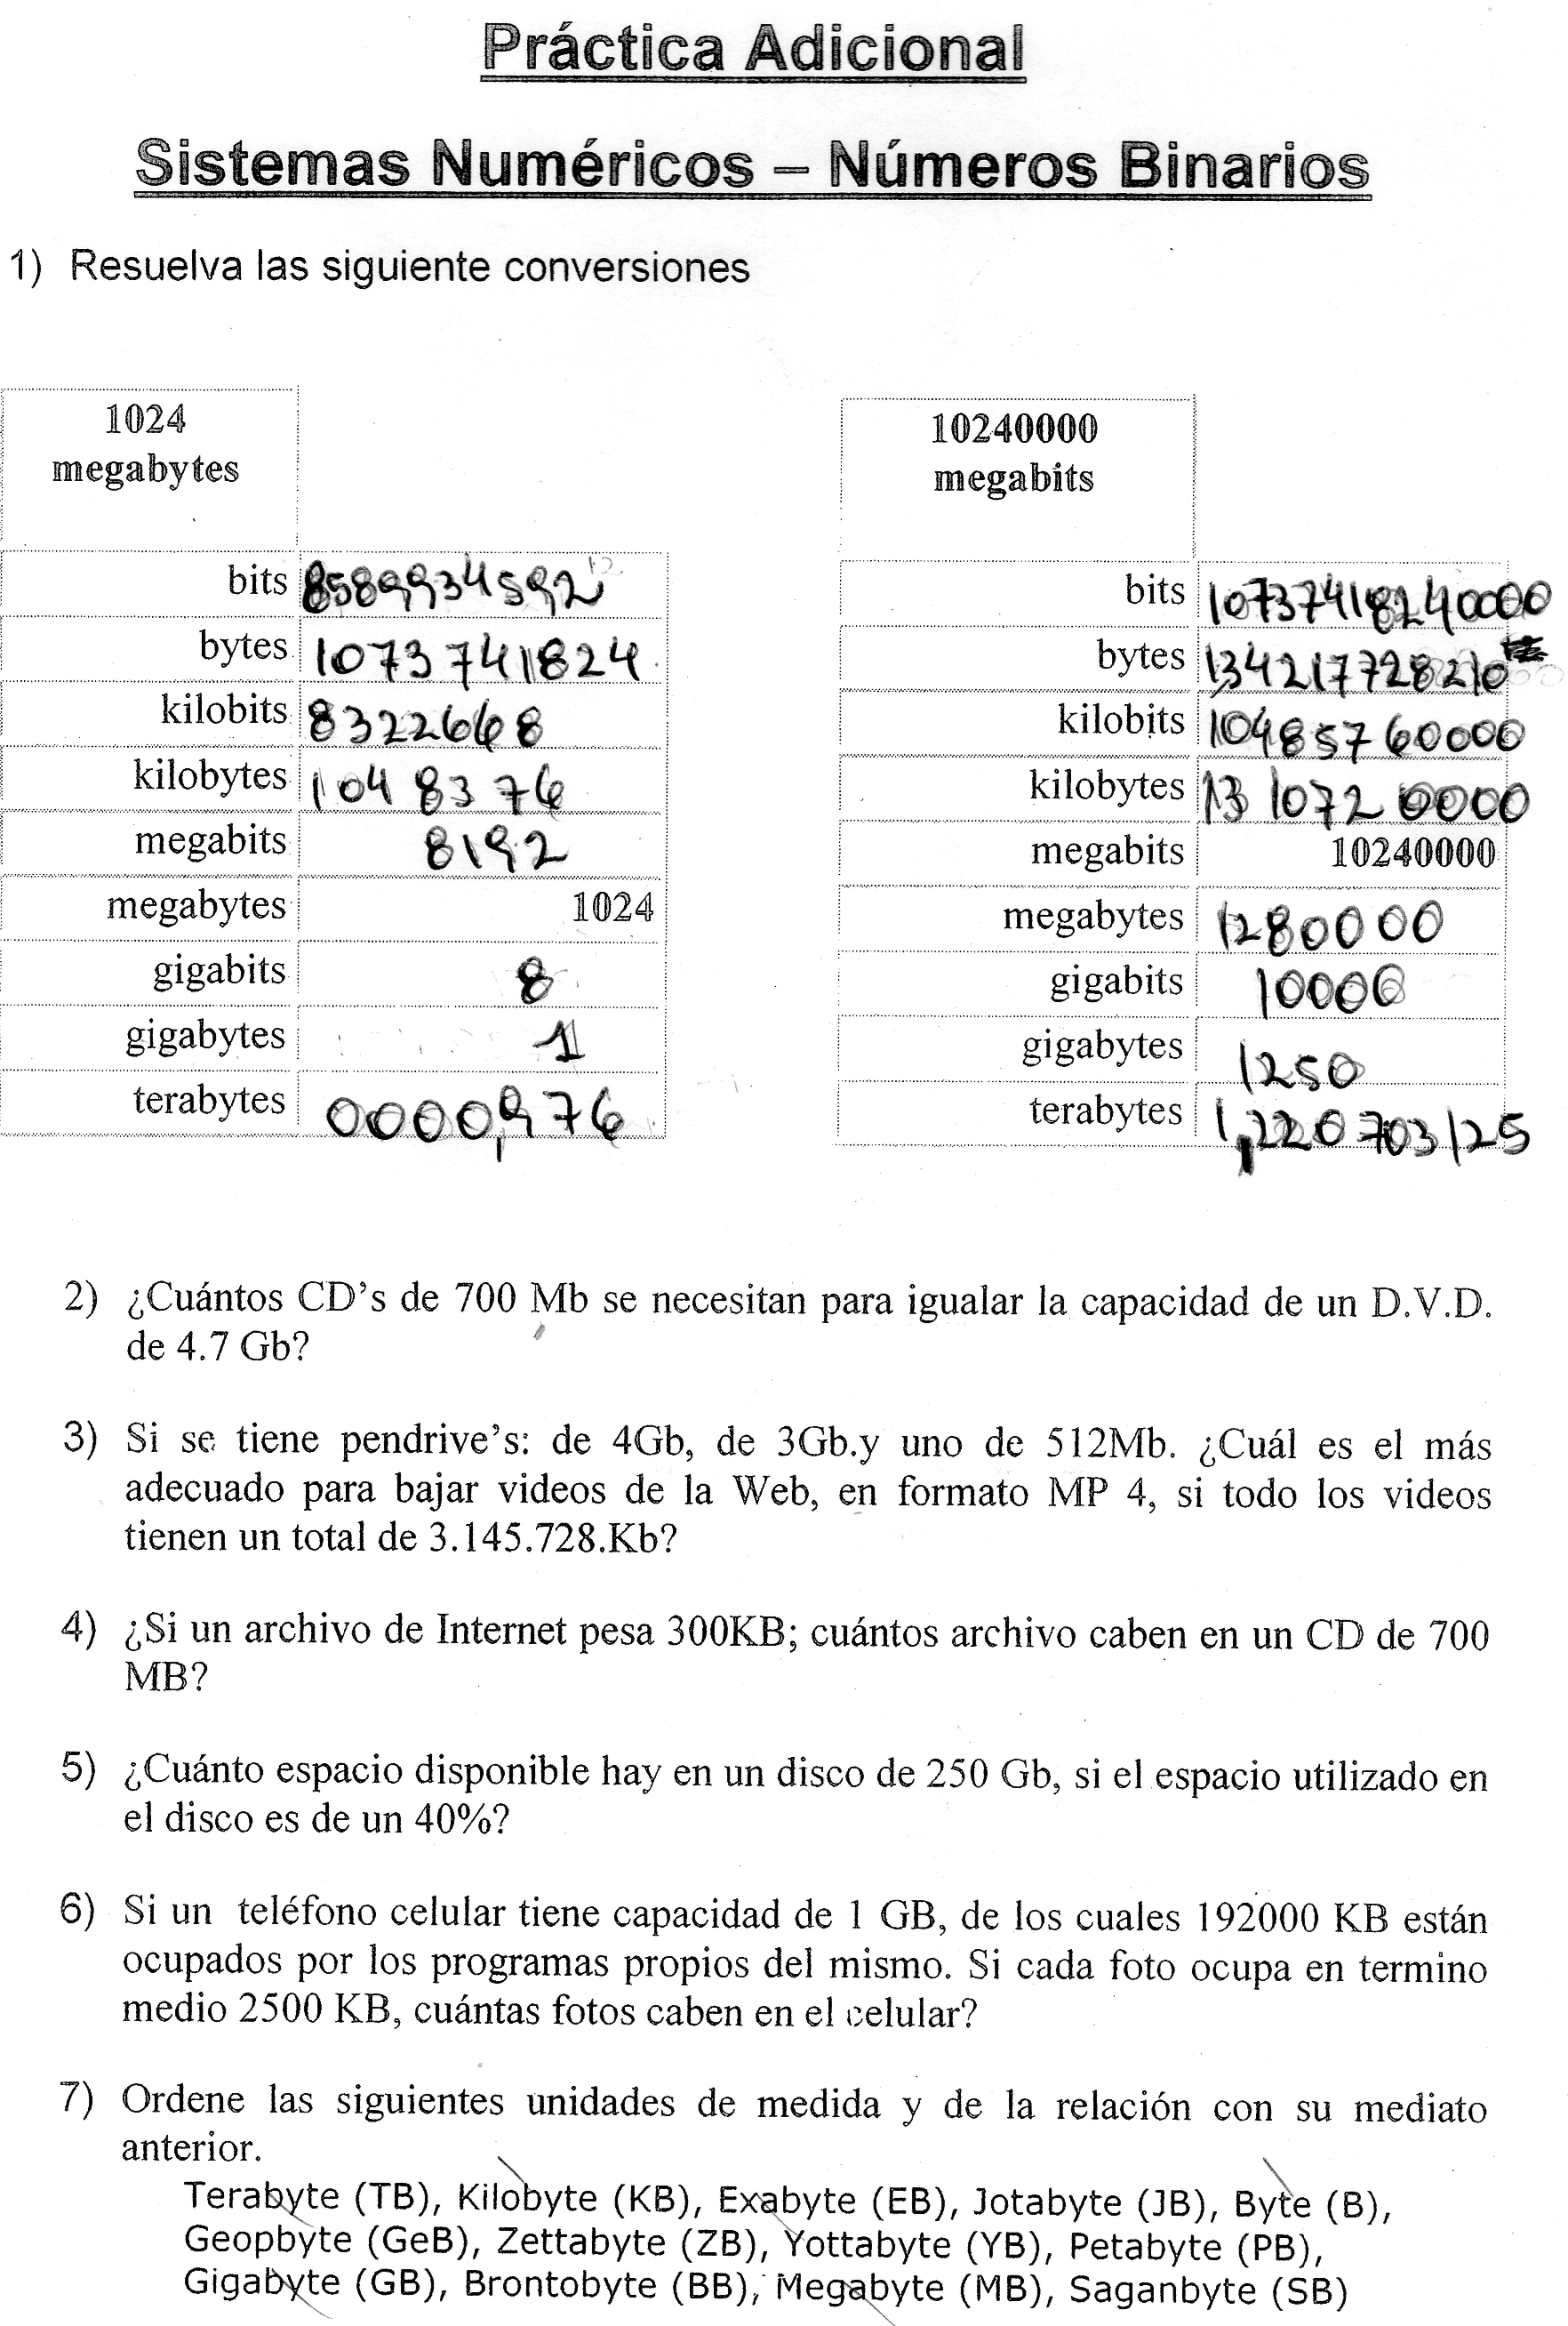 Práctica Adicional
Sistemas Numéricos – Números Binarios
1) Resuelva las siguiente conversiones
1024
megabytes
bits 8589934592
bytes 1073741824
kilobits 8322668
kilobytes 1048376
megabits 8192
megabytes 1024
gigabits 8
gigabytes 1
terabytes 0000,976
10240000
megabits
bits 10737418240000
bytes 134217728210
kilobits 10485760000
kilobytes 1310720000
megabits 10240000
megabytes 1280000
gigabits 10000
gigabytes 1250
terabytes 1,220703125
2) ¿Cuántos CD’s de 700 Mb se necesitan para igualar la capacidad de un D.V.D.
de 4.7 Gb?
3) Si se tiene pendrive’s: de 4Gb, de 3Gb.y uno de 512Mb. ¿Cuál es el más
adecuado para bajar videos de la Web, en formato MP 4, si todo los videos
tienen un total de 3.145.728.Kb?
4) ¿Si un archivo de Internet pesa 300KB; cuántos archivo caben en un CD de 700
MB?
5) ¿Cuánto espacio disponible hay en un disco de 250 Gb, si el espacio utilizado en
el disco es de un 40%?
6) Si un teléfono celular tiene capacidad de 1 GB, de los cuales 192000 KB están
ocupados por los programas propios del mismo. Si cada foto ocupa en termino
medio 2500 KB, cuántas fotos caben en el celular?
7) Ordene las siguientes unidades de medida y de la relación con su mediato
anterior.
Terabyte (TB), Kilobyte (KB), Exabyte (EB), Jotabyte (JB), Byte (B),
Geopbyte (GeB), Zettabyte (ZB), Yottabyte (YB), Petabyte (PB),
Gigabyte (GB), Brontobyte (BB), Megabyte (MB), Saganbyte (SB)